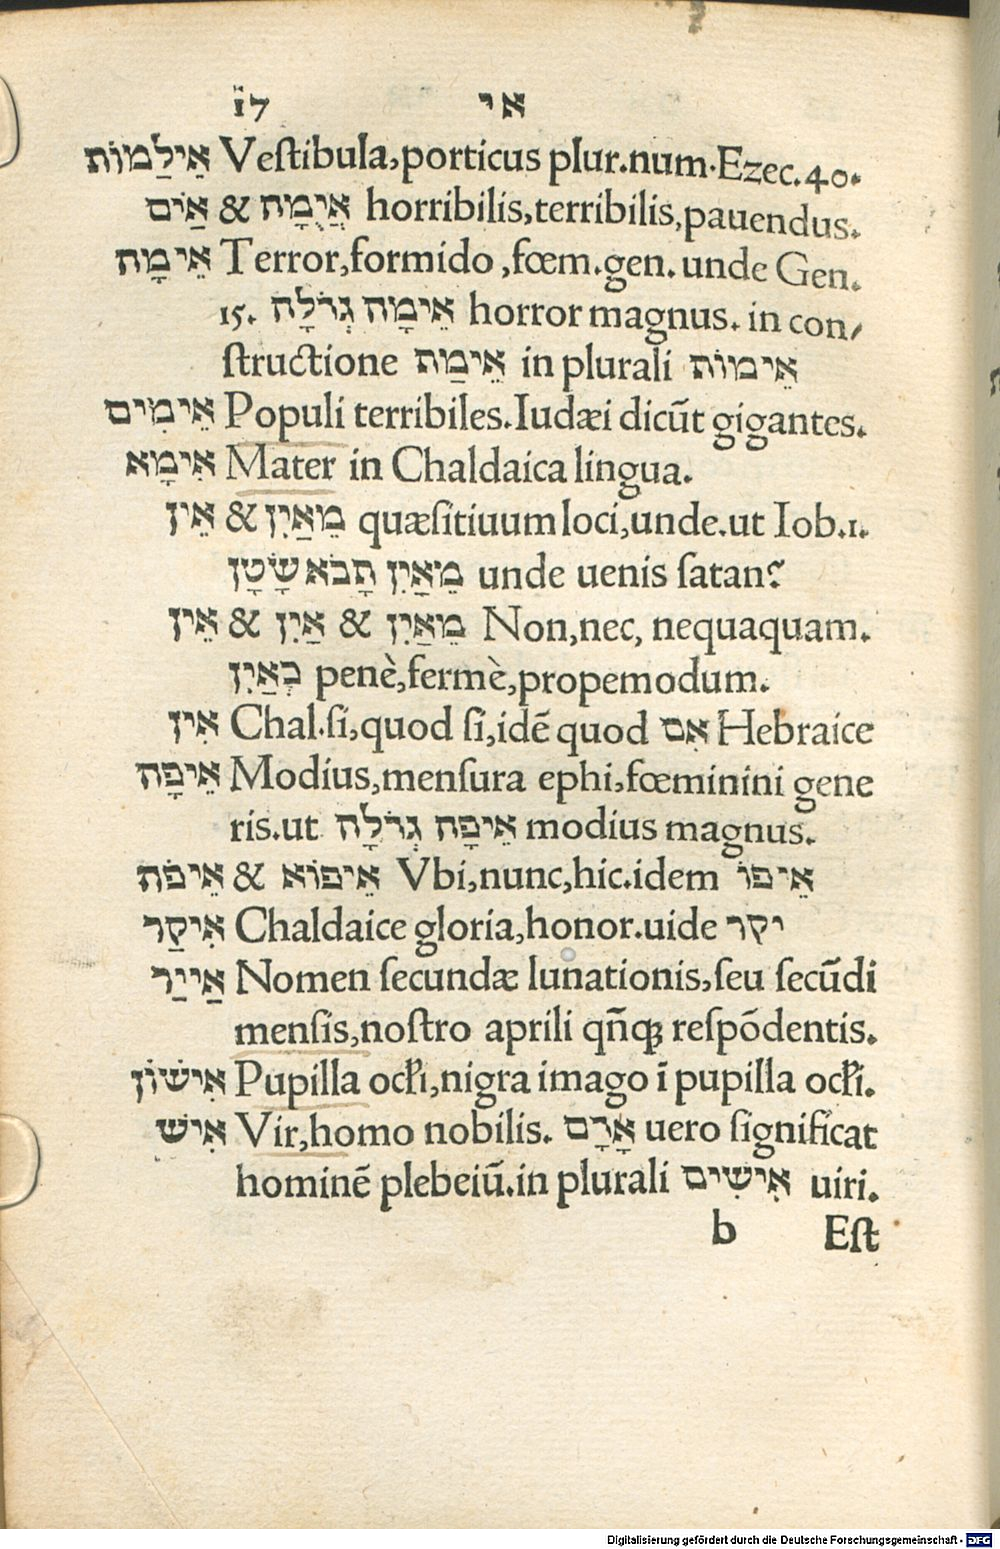 17 אי
אֵילַמוֹת Veſtibula,porticus plur.num.Ezec.40.
אַיִם & אֲיֻמָּה horribilis,terribilis,pauendus.
אֵימָה Terror,formido,fœm.gen.unde Gen.
15. אֵימָה גְדֹלָה horror magnus.in con/
ſtructione אֵימַת in plurali אֵימוֹת
אֵימִים Populi terribiles.Iudæi dicũt gigantes.
אִימָא Mater in Chaldaica lingua.
אֵין & מֵאַיִן quæſitiuum loci,unde.ut Iob.1.
מֵאַיִן תָּבֹא שָׂטָן unde uenis ſatan?
אֵין & אַיִן & מֵאַיִן Non,nec, nequaquam.
כְּאַיִן penè,fermè,propemodum.
אִין Chal.ſi,quod ſi,idẽ quod אִם Hebraice
אֵיפָה Modius,menſura ephi,fœminini gene
ris.ut אֵיפָה גְדֹלָה modius magnus.
אֵיפֹה & אֵיפוֹא Vbi,nunc,hic.idem אֵיפוֹ
אִיקַר Chaldaice gloria,honor.uide יקר
אַיֵיר Nomen ſecundæ lunationis,ſeu ſecũdi
menſis,noſtro aprili qñqꝫ reſpõdentis.
אִישׁוֹן Pupilla ocĺi,nigra imago ĩ pupilla ocĺi.
אִישׁ Vir,homo nobilis. אָדָם uero ſignificat
hominẽ plebeiũ.in plurali אִישִׁים uiri.
b Eſt
Digitalisierung gefördert durch die Deutsche Forschungsgemeinschaft - DFG